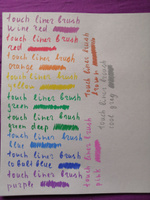 touch liner brush
wine red
touch liner brush
red
touch liner brush
orange
touch liner brush
yellow
touch liner brush
green
touch liner brush
green deep
touch liner brush
blue
touch liner brush
cobalt blue
touch liner brush
purple
touch liner brush
touch liner brush
pink
touch liner brush